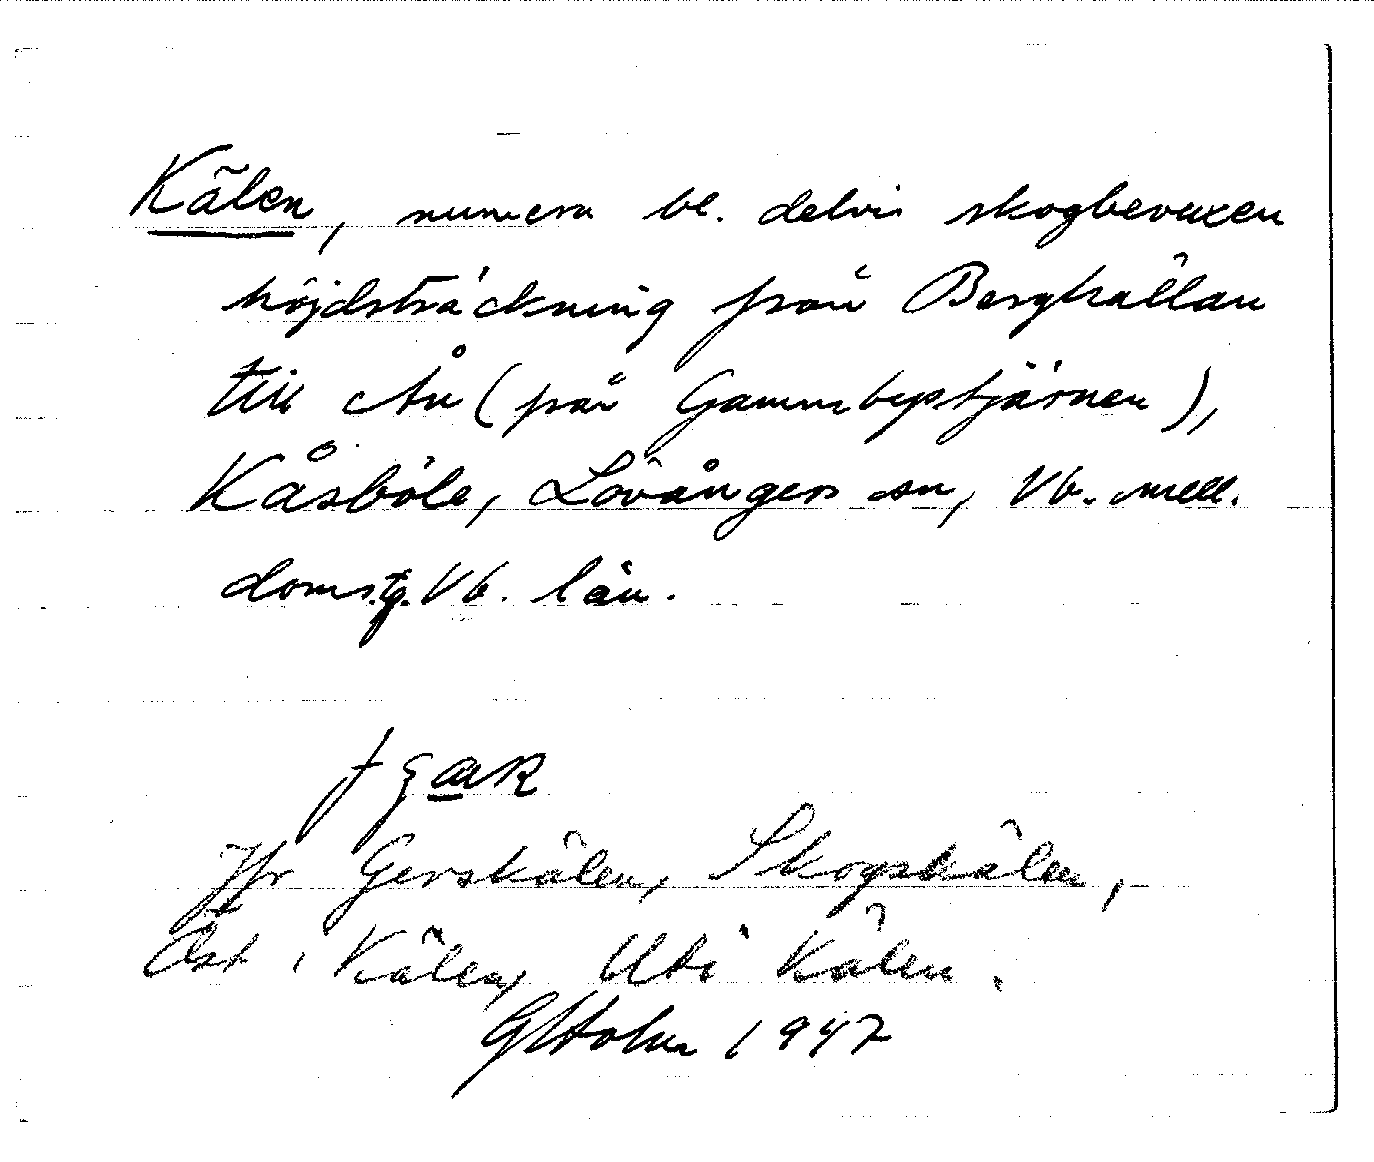 Kälen, numera bl. delvis skogbevuxen
höjdsträckning från Berghällan
till Ån (från Gammbystjärnen),
Kåsböle, Lövångers sn, Vb. mell.
doms.g. Vb. län.
Jfr Gerskälen, Skogskälen,
Öst i Kälen, Uti Kälen.
GHolm 1947